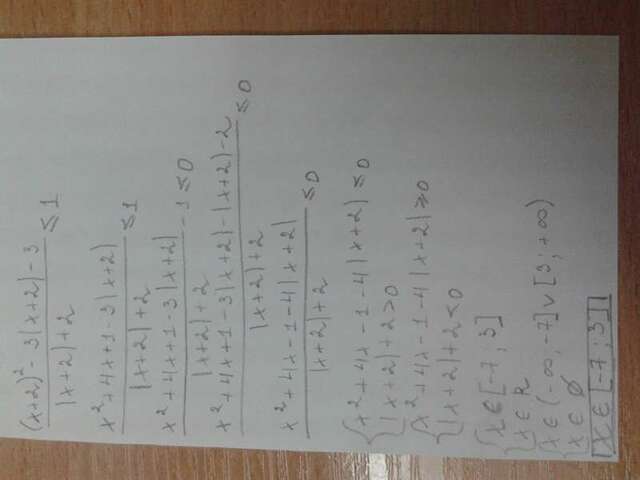 (x+2)² - 3|x+2| - 3
|x+2| + 2 ≤ 1
x² + 4x + 1 - 3|x+2|
|x+2| + 2 ≤ 1
x² + 4x + 1 - 3|x+2|
|x+2| + 2 - 1 ≤ 0
x² + 4x + 1 - 3|x+2| - |x+2| - 2
|x+2| + 2 ≤ 0
x² + 4x - 1 - 4|x+2|
|x+2| + 2 ≤ 0
{ x² + 4x - 1 - 4|x+2| ≤ 0
|x+2| + 2 > 0
{ x² + 4x - 1 - 4|x+2| ≥ 0
|x+2| + 2 < 0
{ x ∈ [-7; 3]
x ∈ R
{ x ∈ (-∞, -7] ∪ [3; +∞)
x ∈ ∅
x ∈ [-7; 3]